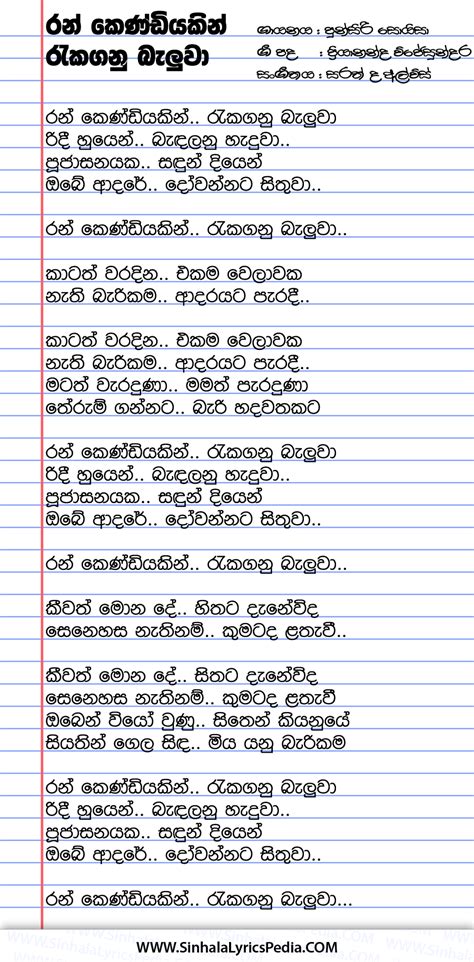 රන් කෙණ්ඩියකින්
රැකගනු බැලුවා
ගායනය : පුන්සිරි සොයිසා
ගී පද : ප්‍රියානන්ද විජේසුන්දර
සංගීතය : සරත් ද අල්විස්
රන් කෙණ්ඩියකින්.. රැකගනු බැලුවා
රිදී හුයෙන්.. බැඳලනු හැදුවා..
පූජාසනයක.. සඳුන් දියෙන්
ඔබේ ආදරේ.. දෝවන්නට සිතුවා..
රන් කෙණ්ඩියකින්.. රැකගනු බැලුවා..
කාටත් වරදින.. එකම වෙලාවක
නැති බැරිකම.. ආදරයට පැරදී..
කාටත් වරදින.. එකම වෙලාවක
නැති බැරිකම.. ආදරයට පැරදී..
මටත් වැරදුණා.. මමත් පැරදුණා
තේරුම් ගන්නට.. බැරි හදවතකට
රන් කෙණ්ඩියකින්.. රැකගනු බැලුවා
රිදී හුයෙන්.. බැඳලනු හැදුවා..
පූජාසනයක.. සඳුන් දියෙන්
ඔබේ ආදරේ.. දෝවන්නට සිතුවා..
රන් කෙණ්ඩියකින්.. රැකගනු බැලුවා..
කීවත් මොන දේ.. හිතට දැනේවිද
සෙනෙහස නැතිනම්.. කුමටද ළතැවී..
කීවත් මොන දේ.. සිතට දැනේවිද
සෙනෙහස නැතිනම්.. කුමටද ළතැවී
ඔබෙන් වියෝ වුණු.. සිතෙන් කියනුයේ
සියතින් ගෙල සිඳ.. මිය යනු බැරිකම
රන් කෙණ්ඩියකින්.. රැකගනු බැලුවා
රිදී හුයෙන්.. බැඳලනු හැදුවා..
පූජාසනයක.. සඳුන් දියෙන්
ඔබේ ආදරේ.. දෝවන්නට සිතුවා..
රන් කෙණ්ඩියකින්.. රැකගනු බැලුවා...
www.SinhalaLyricsPedia.COM